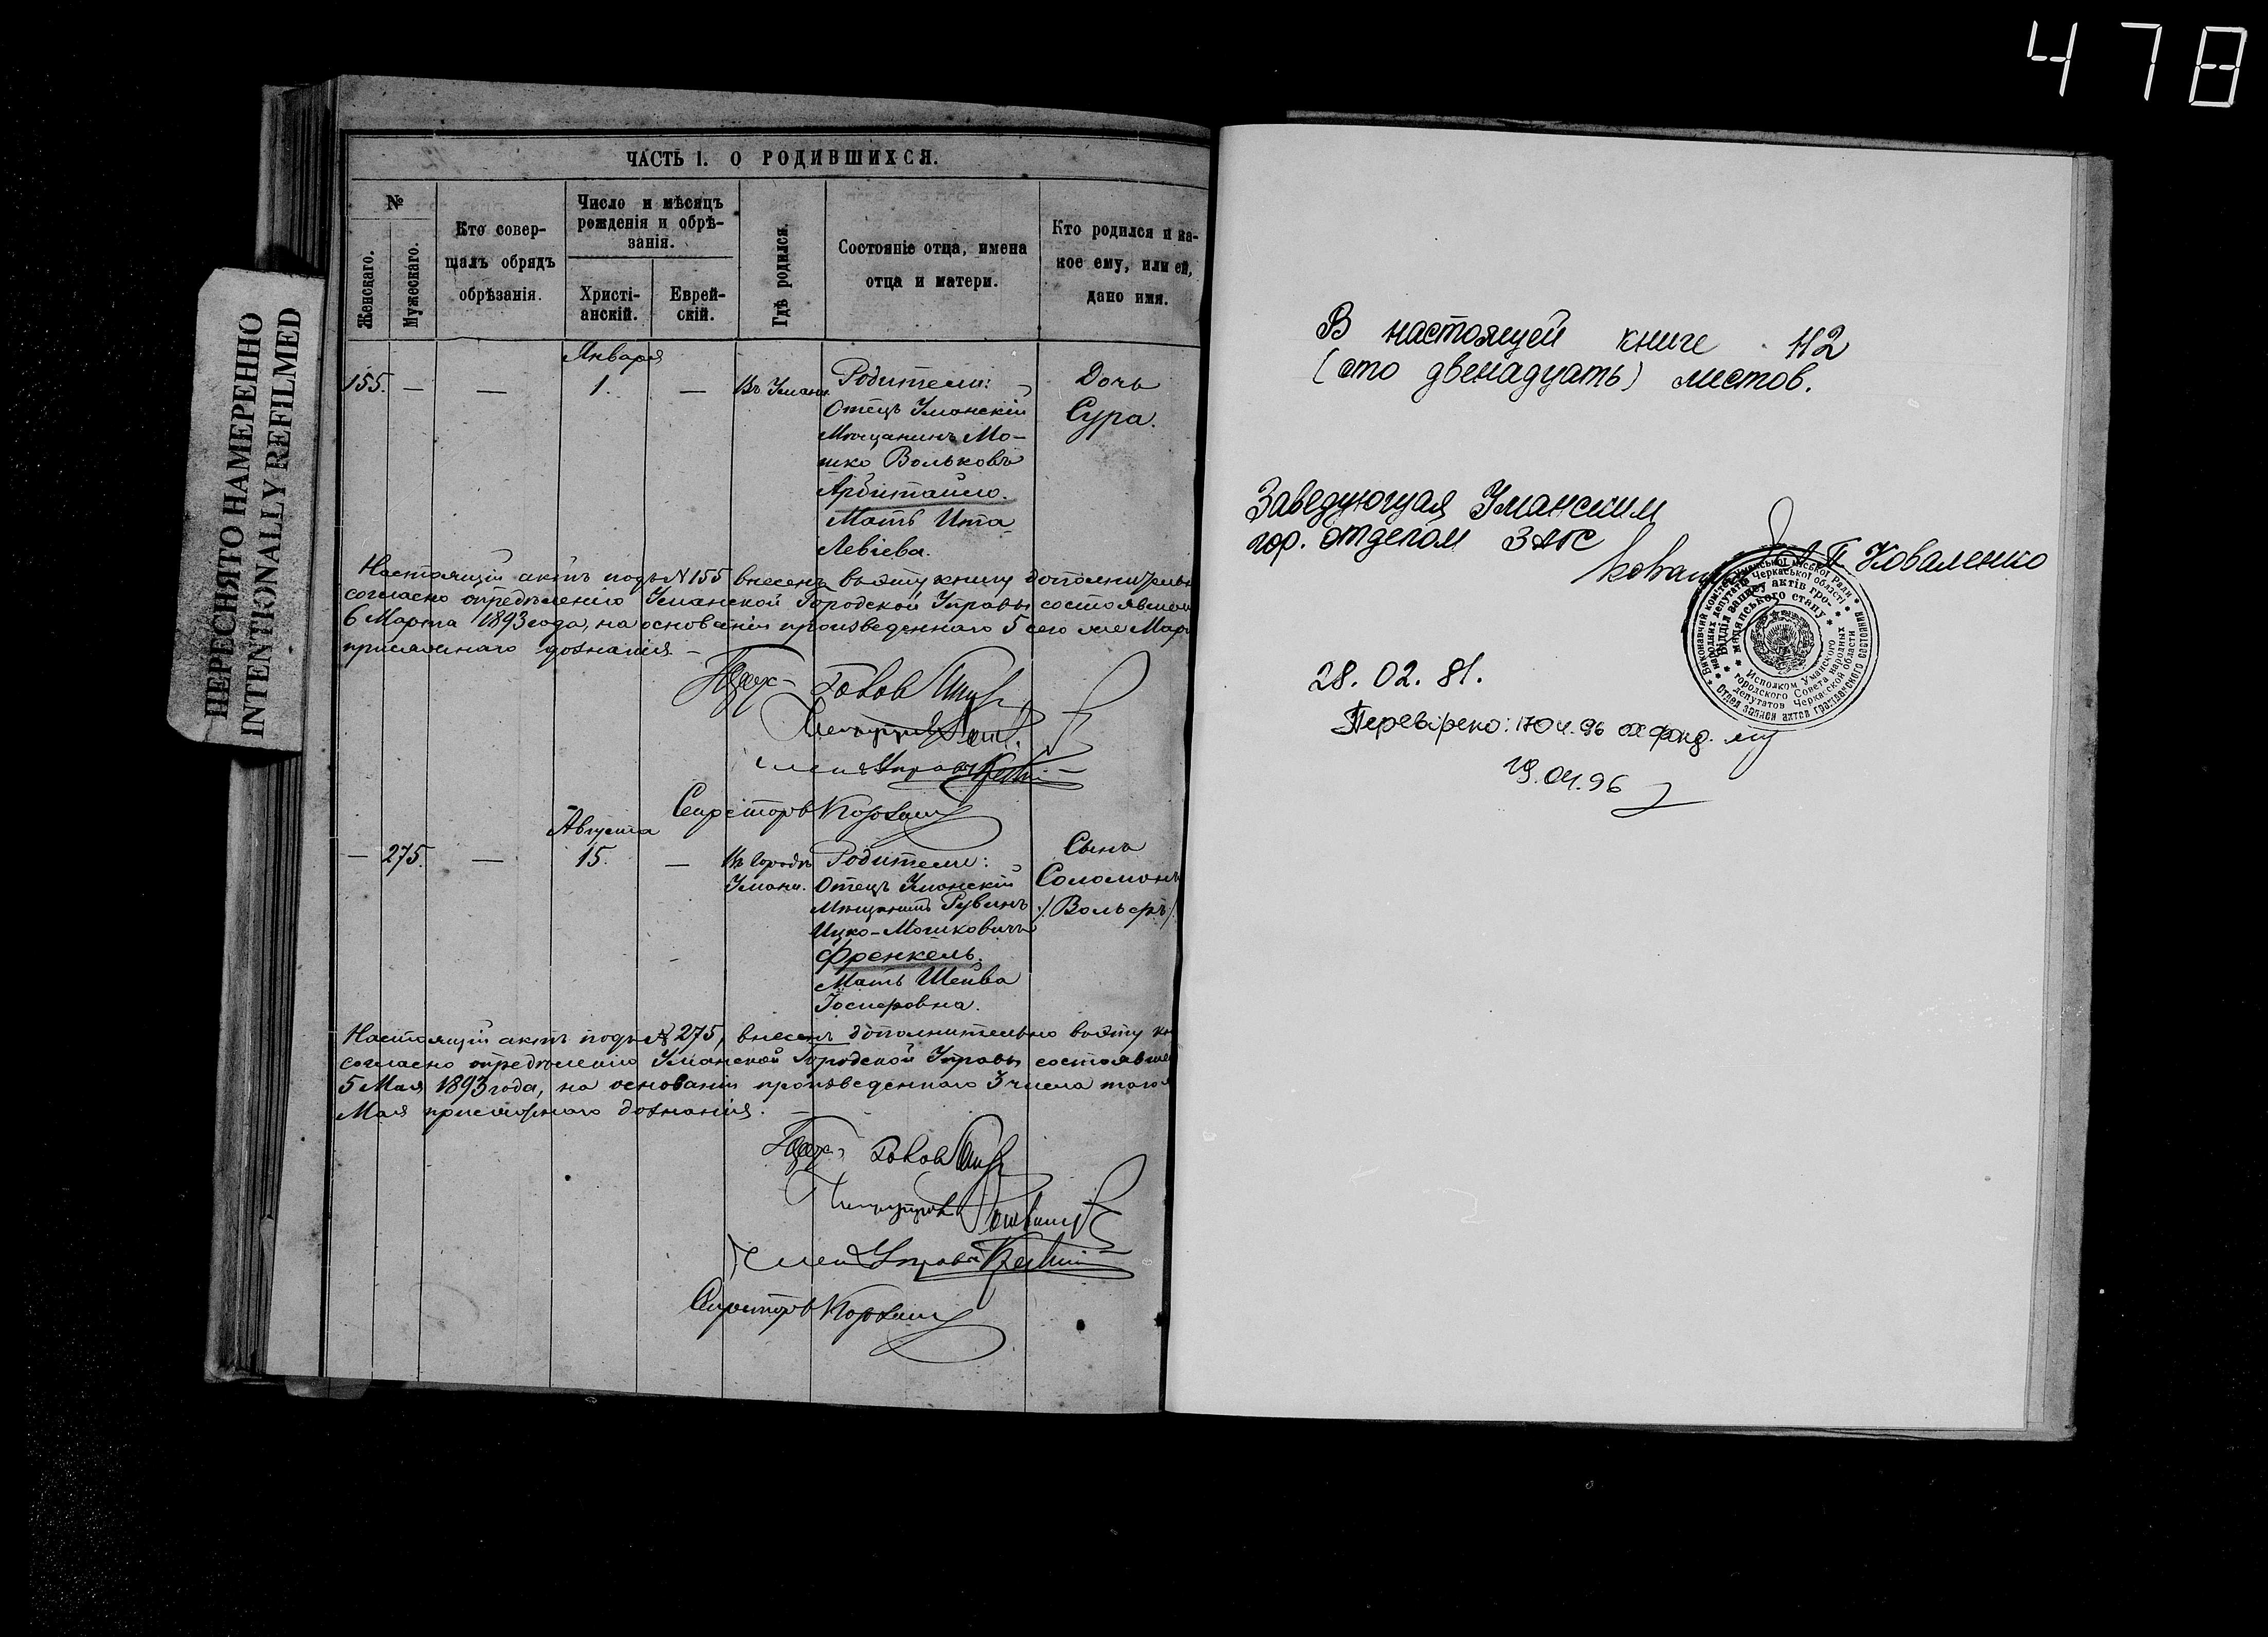 478
ПЕРЕСНЯТО НАМЕРЕННО
INTENTIONALLY REFILMED
ЧАСТЬ I. О РОДИВШИХСЯ.
№
Женскаго.
Мужескаго.
Кто совер-
шалъ обрядъ
обрѣзанія.
Число и мѣсяцъ
рожденія и обрѣ-
занія.
Христі-
анскій.
Еврей-
скій.
Гдѣ родился.
Состояніе отца, имена
отца и матери.
Кто родился и ка-
кое ему, или ей,
дано имя.
Января
155. — — 1. — Въ Умани
Родители:
Отецъ Уманскій
Мѣщанинъ Мо-
шко Вольковъ
Арбитайло.
Мать Ита
Левіева.
Дочь
Сура.
Настоящій актъ подъ N 155 внесенъ въ эту книгу дополнительн
согласно опредѣленію Уманской Городской Управы состоявшем
6 Марта 1893 года, на основаніи произведеннаго 5 сего же Мар
присяжнаго дознанія. —
Секретарь
Августа
— 275. — 15. — Въ Городѣ
Умани.
Родители:
Отецъ Уманскій
Мѣщанинъ Рувинъ
Ицко-Мошковичъ
Френкель.
Мать Шейва
Іосиѳовна.
Сынъ
Соломонъ
/Вольфъ/
Настоящій актъ подъ N 275, внесенъ дополнительно въ эту кн
согласно опредѣленію Уманской Городской Управы состоявше
5 Мая 1893 года, на основаніи произведеннаго 3 числа того
Мая присяжнаго дознанія. —
Членъ Управы
Секретарь
В настоящей книге 112
(сто двенадцать) листов.
Заведующая Уманским
гор. отделом ЗАГС
Коваленко
Виконавчий комітет Уманської міської Ради
народних депутатів Черкаської області
Відділ запису актів гро-
мадянського стану
Исполком Уманского
городского Совета народных
депутатов Черкасской области
Отдел записи актов гражданского состояния
28. 02. 81.
Перевірено: 17.04.96
19.04.96